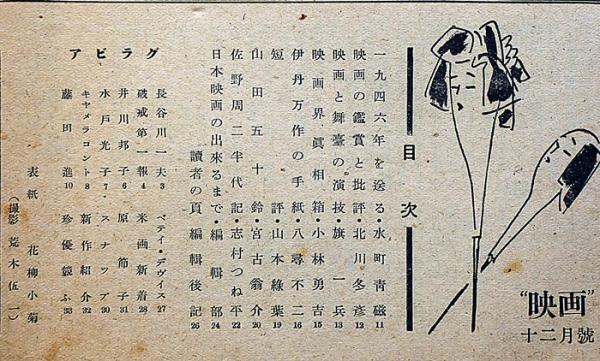 “映画”
十二月號
目次
一九四六年を送る・水町青磁 11
映画の鑑賞と批評・北川冬彦 12
映画と舞臺の演技・旗一兵 13
映画界眞相箱・小林勇吉 15
伊丹万作の手紙・八尋不二 16
短評・山本綠葉 19
山田五十鈴・宮古翁介 20
佐野周二半代記・志村つね平 22
日本映画の出來るまで・編輯部 24
讀者の頁・編輯後記 26
グラビア
長谷川一夫・3 ベテイ・デヴイス 27
破戒第一報・4 米画新着 28
井川邦子・6 原節子 31
水戸光子・7 スナップ 30
キヤメラコント・8 新作紹介 32
藤田進・10 珍優競ふ 33
表紙 花柳小菊
(撮影 荒木伍一)